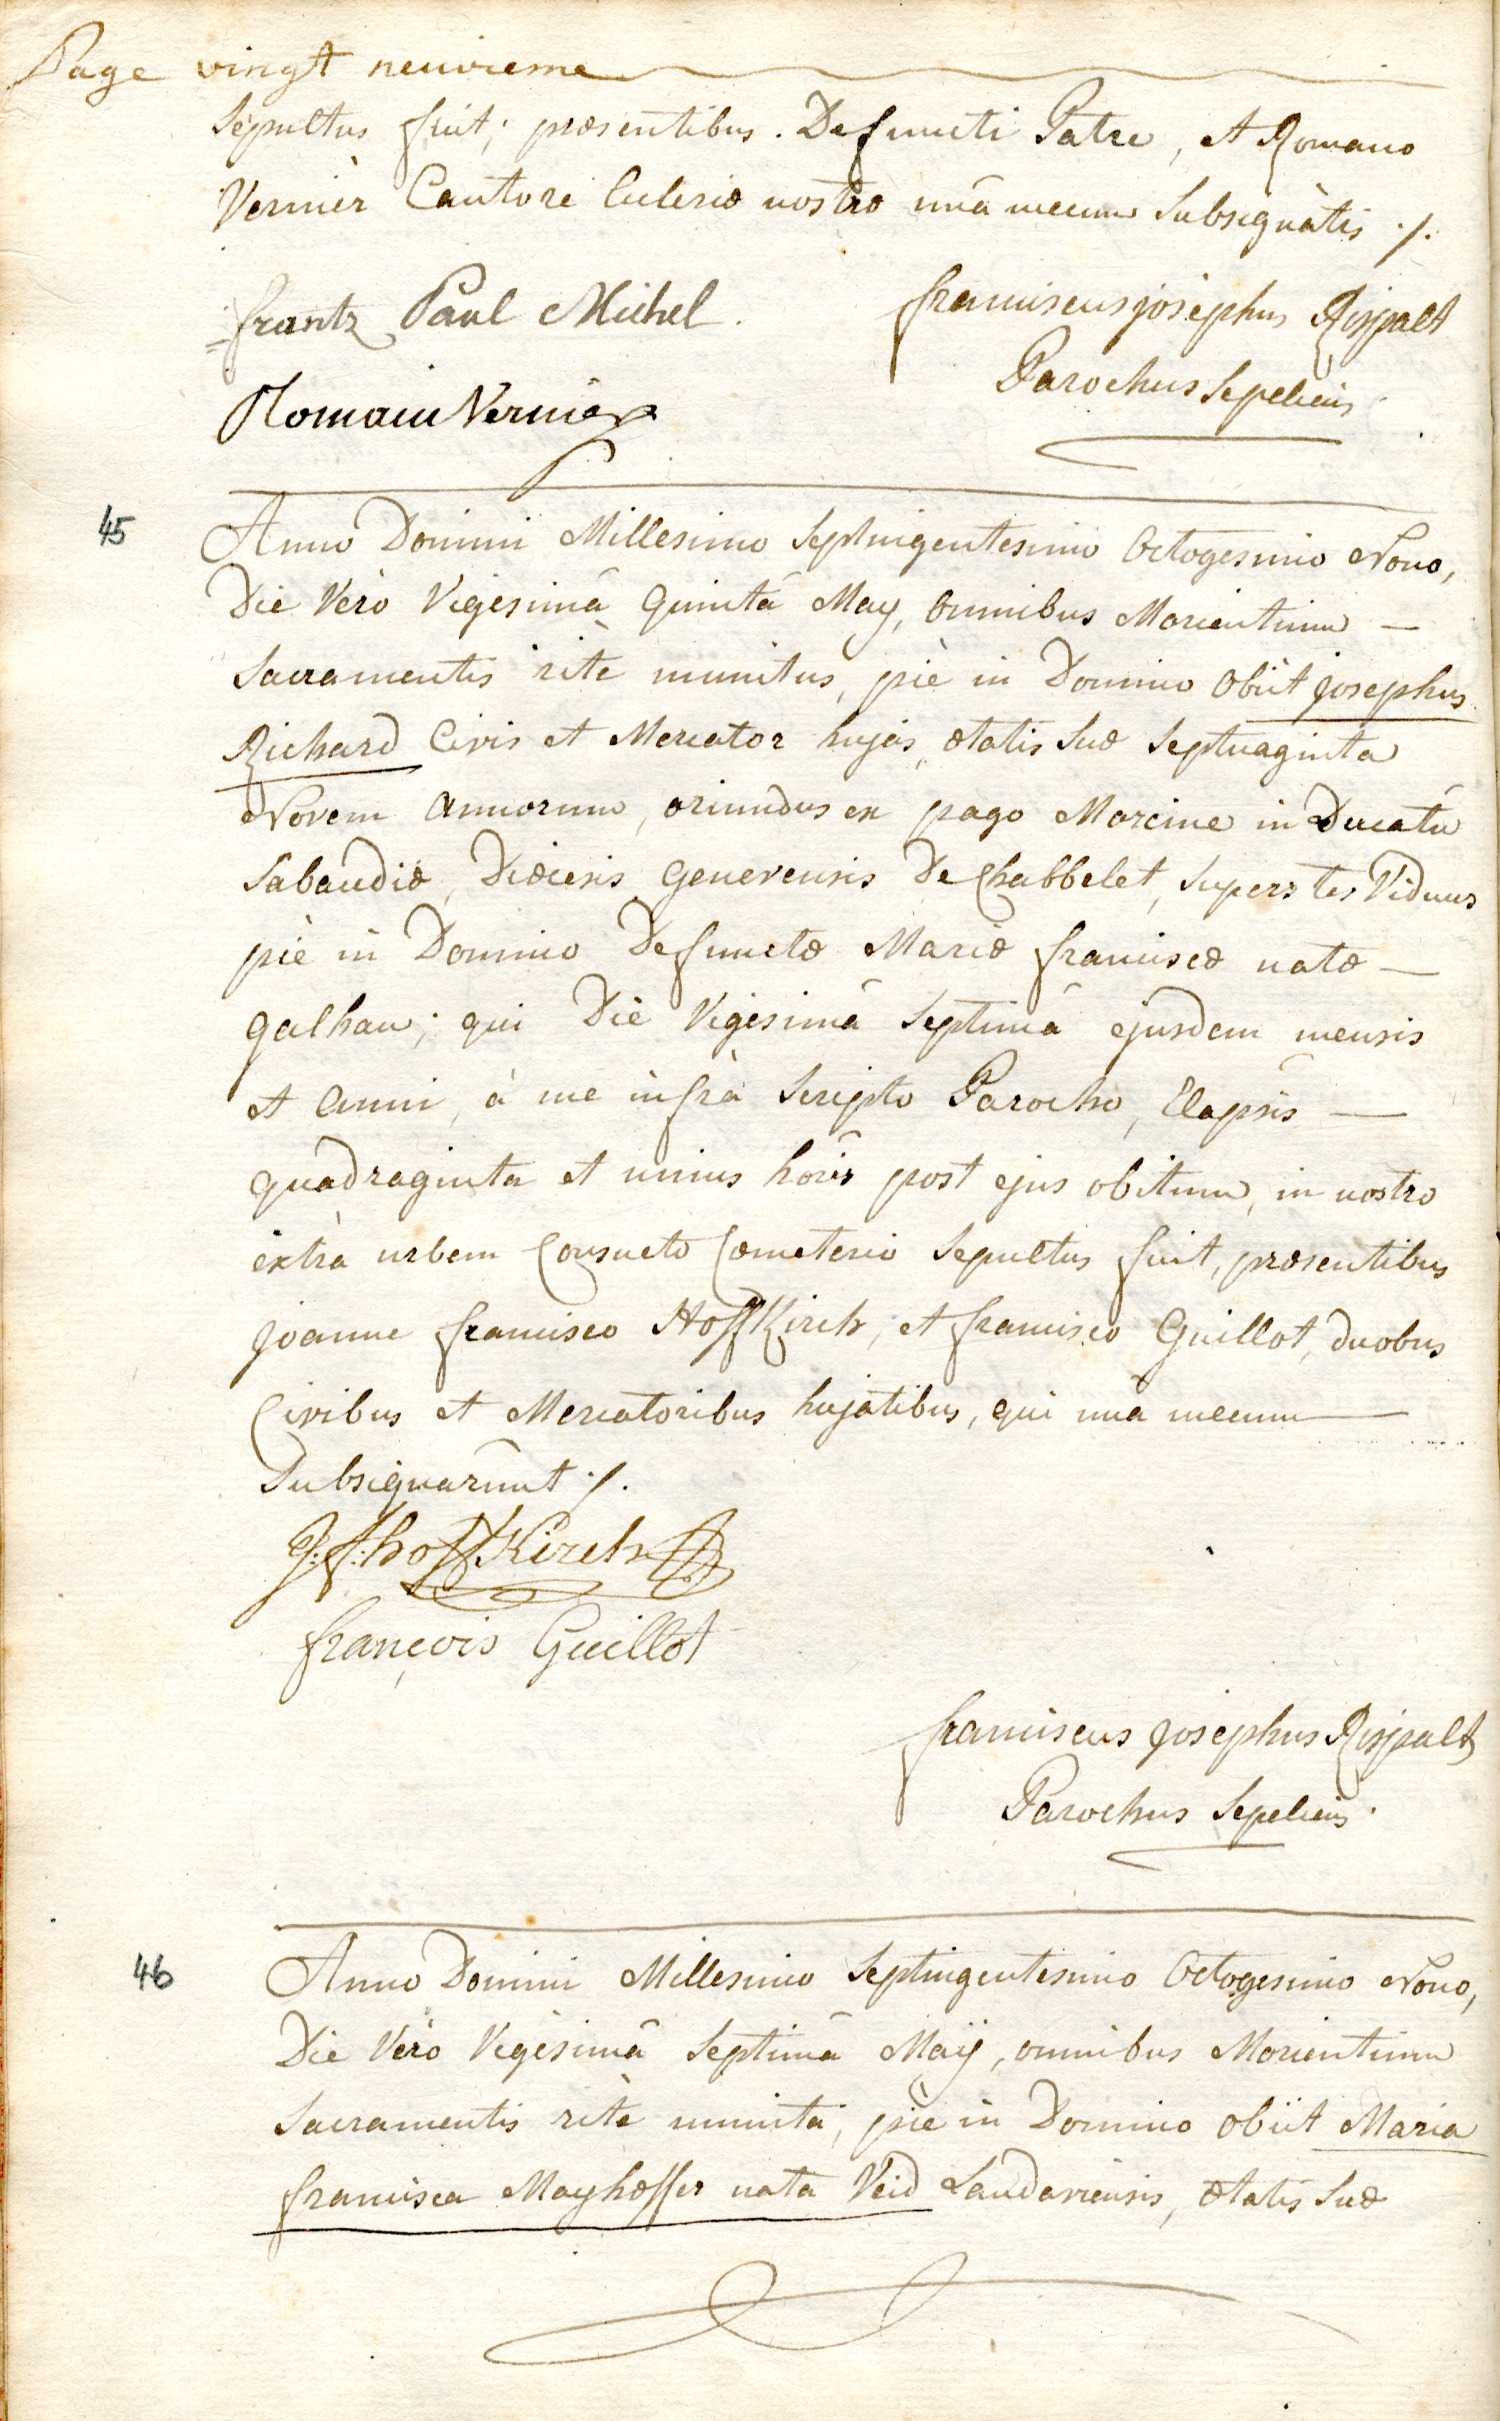 Page vingt neuvieme
Sepultus fuit; præsentibus. Defuncti Patre, et Romano
Vernièr Cantore Eclesiæ nostræ unâ mecum Subsignàtis ./.
frantz Paul Michel.
franciscus josephus Rispalt
Parochus Sepeliens.
Romain Vernier
45
Anno Domini Millesimo Septingentesimo Octogesimo Nono,
Die Verò Vigesimâ Quintâ May, Omnibus Morientium —
Sacramentis ritè munitus, piè in Domino Obiit josephus
Richard Civis et Mercator hujas, ætatis Suæ Septuaginta
Novem Annorum, oriundus ex pago Morcine in Ducatû
Sabaudiæ, Diœcesis Genevensis De Chabbelet, Superstes Viduus
piè in Domino Defunctæ Mariæ franciscæ natæ —
Galhau; qui Diè Vigesimâ Septimâ ejusdem mensis
et Anni, à me infrà Scripto Parocho, Elapsis —
Quadraginta et unius horis post ejus obitum, in nostro
èxtrà urbem Consueto Cœmeterio Sepultus fuit, præsentibus
joanne francisco Hoffkirch, et francisco Guillot, duobus
Civibus et Mercatoribus hujatibus, qui unâ mecum —
Subsignarunt ./.
J: f: hoffKirch
françois Guillot
franciscus josephus Rispalt
Parochus Sepeliens.
46
Anno Domini Millesimo Septingentesimo Octogesimo Nono,
Die Verò Vigesimâ Septimâ Maÿ, omnibus Morientium
Sacramentis ritè munita, piè in Domino obiit Maria
francisca Mayhoffer nata Veid Landaviensis, ætatis Suæ